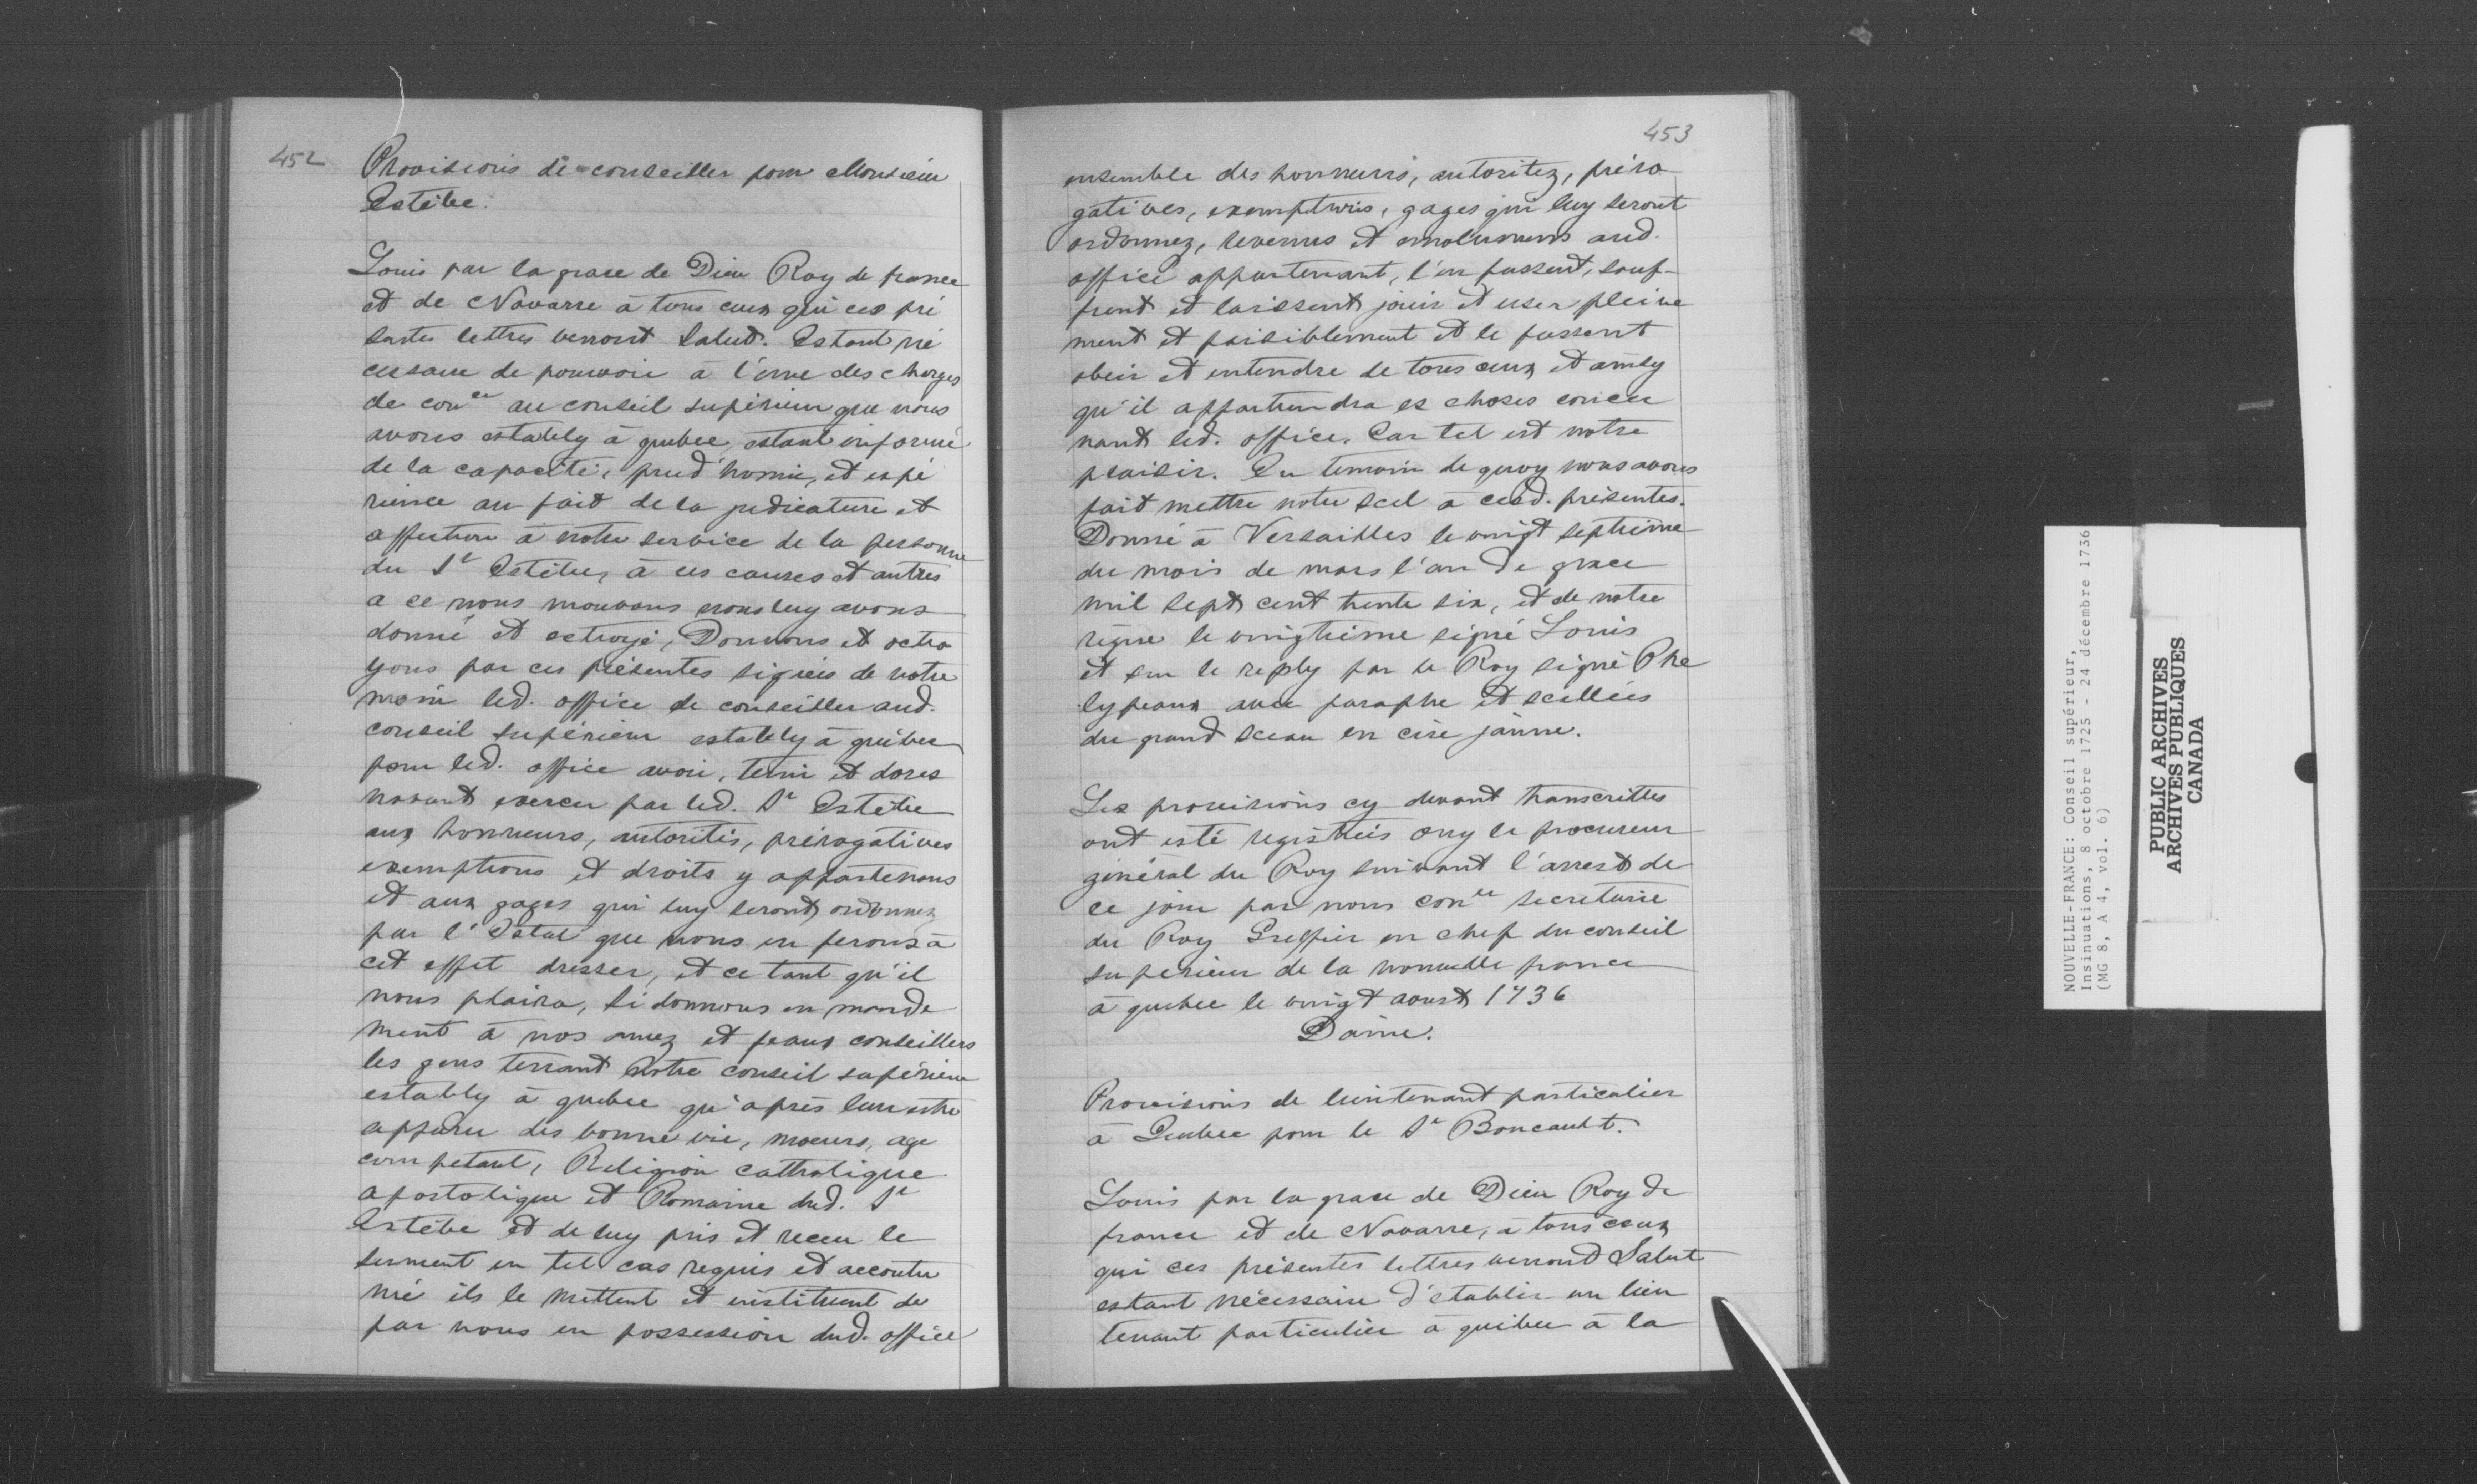 452
Provisions de conseiller pour Monsieur
Estèbe.
Louis par la grace de Dieu Roy de france
et de Navarre à tous ceux qui ces pré
sentes lettres verront Salut. Estant né
cessaire de pourvoir à l'une des charges
de con^er au conseil supérieur que nous
avons estably à quebec, estant informé
de la capacité, prud'homie, et expé
rience au fait de la judicature et
affection à notre service de la personne
du S^r Estèbe, à ces causes et autres
a ce nous mouvans nous luy avons
donné et octroyé, Donnons et octro
yons par ces présentes signées de notre
main led. office de conseiller aud.
conseil supérieur estably à québec
pour led. office avoir, tenir et dores
navant exercer par led. S^r Estèbe
aux honneurs, autorités, prérogatives
exemptions et droits y appartenans
et aux gages qui luy seront ordonnez
par l'Estat que nous en ferons à
cet effet dresser, et ce tant qu'il
nous plaira, si donnons en mande
ment à nos amez et feaux conseillers
les gens tenant notre conseil supérieur
estably à quebec qu'après leur estre
apparu des bonne vie, moeurs, age
competant, Religion catholique
apostolique et Romaine dud. S^r
Estèbe et de luy pris et receu le
serment en tel cas requis et accoutu
mé ils le mettent et instituent de
par nous en possession dud. office
453
ensemble des honneurs, autoritez, préro-
gatives, exemptions, gages qui luy seront
ordonnez, revenus et emolumens aud.
office appartenant, l'en fassent, souf-
frent et laissent jouir et user pleine
ment et paisiblement et le fassent
obeir et entendre de tous ceux et ainsy
qu'il appartiendra es choses concer
nant led. office. Car tel est notre
plaisir. En temoin de quoy nous avons
fait mettre notre scel à cesd. présentes.
Donné à Versailles le vingt septième
du mois de mars l'an de grace
mil sept cent trente six, et de notre
règne le vingtième signé Louis
et sur le reply par le Roy signé Phe
lypeaux avec paraphe et scellées
du grand sceau en cire jaune.
Les provisions cy devant transcrittes
ont esté registrées ouy le procureur
général du Roy suivant l'arrest de
ce jour par nous con^er secretaire
du Roy Greffier en chef du conseil
superieur de la nouvelle france
à quebec le vingt aoust 1736
Daine.
Provisions de lieutenant particulier
à Quebec pour le S^r Boucault.
Louis par la grace de Dieu Roy de
france et de Navarre, à tous ceux
qui ces présentes lettres verront Salut
estant nécessaire d'établir un lieu
tenant particulier à quebec à la
NOUVELLE-FRANCE: Conseil supérieur,
Insinuations, 8 octobre 1725 - 24 décembre 1736
(MG 8, A 4, vol. 6)
PUBLIC ARCHIVES
ARCHIVES PUBLIQUES
CANADA